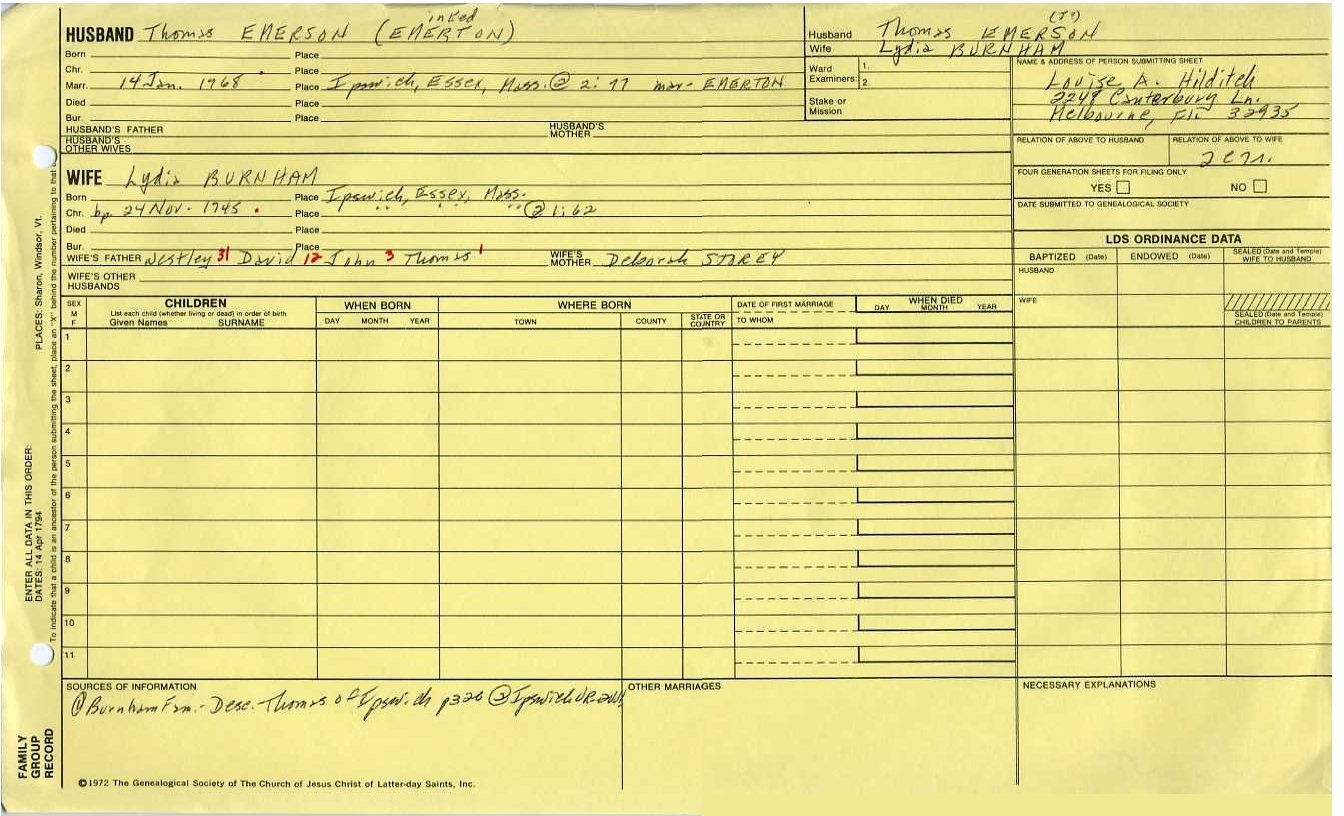 HUSBAND Thomas EMERSON (EMERTON) inked
Born Place
Chr. Place
Marr. 14 Jan. 1768 Place Ipswich, Essex, Mass. @ 2:97 mar- EMERTON
Died Place
Bur. Place
HUSBAND'S FATHER HUSBAND'S MOTHER
HUSBAND'S OTHER WIVES
Husband Thomas EMERSON (T?)
Wife Lydia BURNHAM
Ward Examiners: 1.
2.
Stake or Mission
NAME & ADDRESS OF PERSON SUBMITTING SHEET
Louise A. Hilditch
2248 Canterbury Ln.
Melbourne, Fla 32935
RELATION OF ABOVE TO HUSBAND RELATION OF ABOVE TO WIFE
FOUR GENERATION SHEETS FOR FILING ONLY
YES NO
DATE SUBMITTED TO GENEALOGICAL SOCIETY
WIFE Lydia BURNHAM
Born Place Ipswich, Essex, Mass.
Chr. bp. 24 Nov. 1745 Place " " " @ 1:62
Died Place
Bur. Place
WIFE'S FATHER Westley 31 David 12 John 3 Thomas 1 WIFE'S MOTHER Deborah STOREY
WIFE'S OTHER HUSBANDS
LDS ORDINANCE DATA
BAPTIZED (Date) ENDOWED (Date) SEALED (Date and Temple) WIFE TO HUSBAND
HUSBAND
WIFE
SEALED (Date and Temple) CHILDREN TO PARENTS
SEX M F
CHILDREN
List each child (whether living or dead) in order of birth
Given Names SURNAME
WHEN BORN
DAY MONTH YEAR
WHERE BORN
TOWN COUNTY STATE OR COUNTRY
DATE OF FIRST MARRIAGE
TO WHOM
WHEN DIED
DAY MONTH YEAR
1
2
3
4
5
6
7
8
9
10
11
SOURCES OF INFORMATION
① Burnham Fam.- Desc. Thomas of Ipswich p326 ② Ipswich VR
OTHER MARRIAGES
NECESSARY EXPLANATIONS
©1972 The Genealogical Society of The Church of Jesus Christ of Latter-day Saints, Inc.
FAMILY GROUP RECORD
ENTER ALL DATA IN THIS ORDER:
DATES: 14 Apr 1794
PLACES: Sharon, Windsor, Vt.
To indicate that a child is an ancestor of the person submitting the sheet, place an "X" behind the number pertaining to that